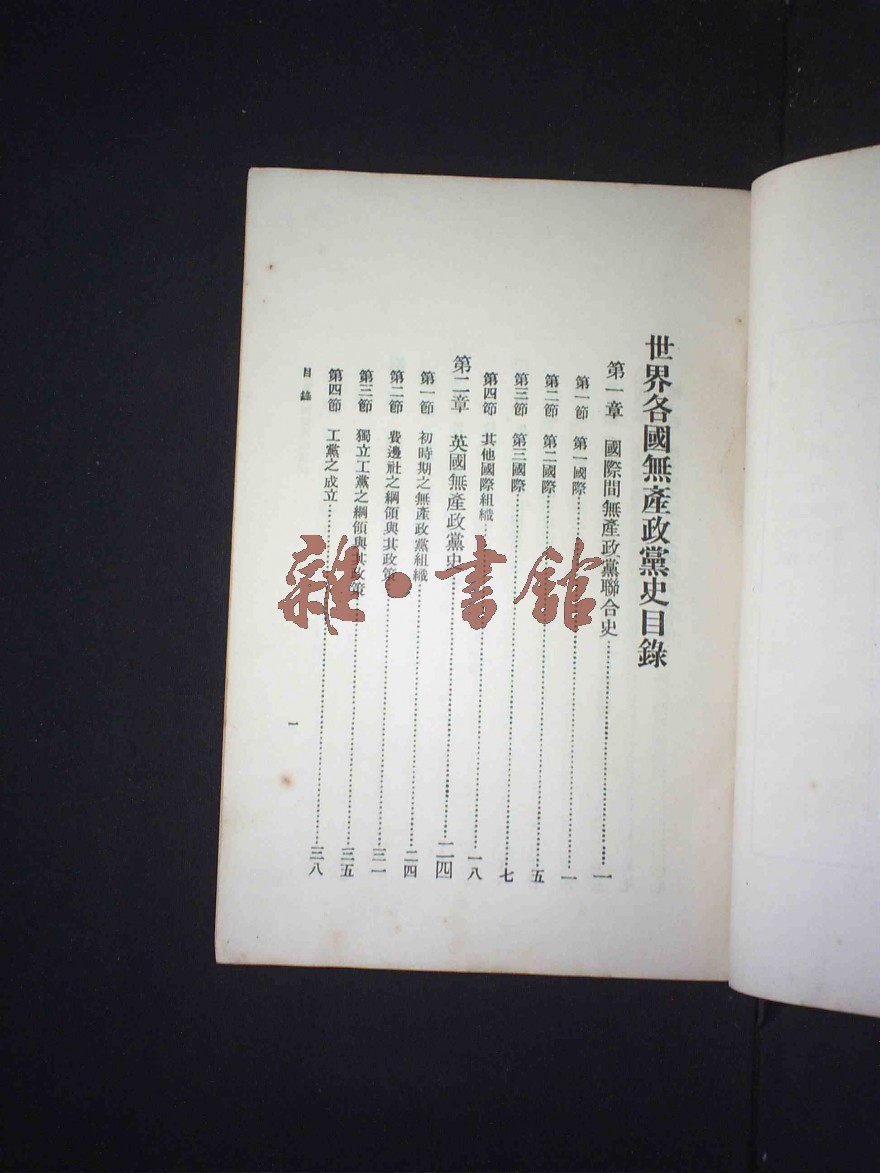 世界各國無產政黨史目錄
第一章 國際間無產政黨聯合史……一
第一節 第一國際……一
第二節 第二國際……五
第三節 第三國際……七
第四節 其他國際組織……一八
第二章 英國無產政黨史……二四
第一節 初時期之無產政黨組織……二四
第二節 費邊社之綱領與其政策……三一
第三節 獨立工黨之綱領與其政策……三五
第四節 工黨之成立……三八
目錄
一
雜·書館